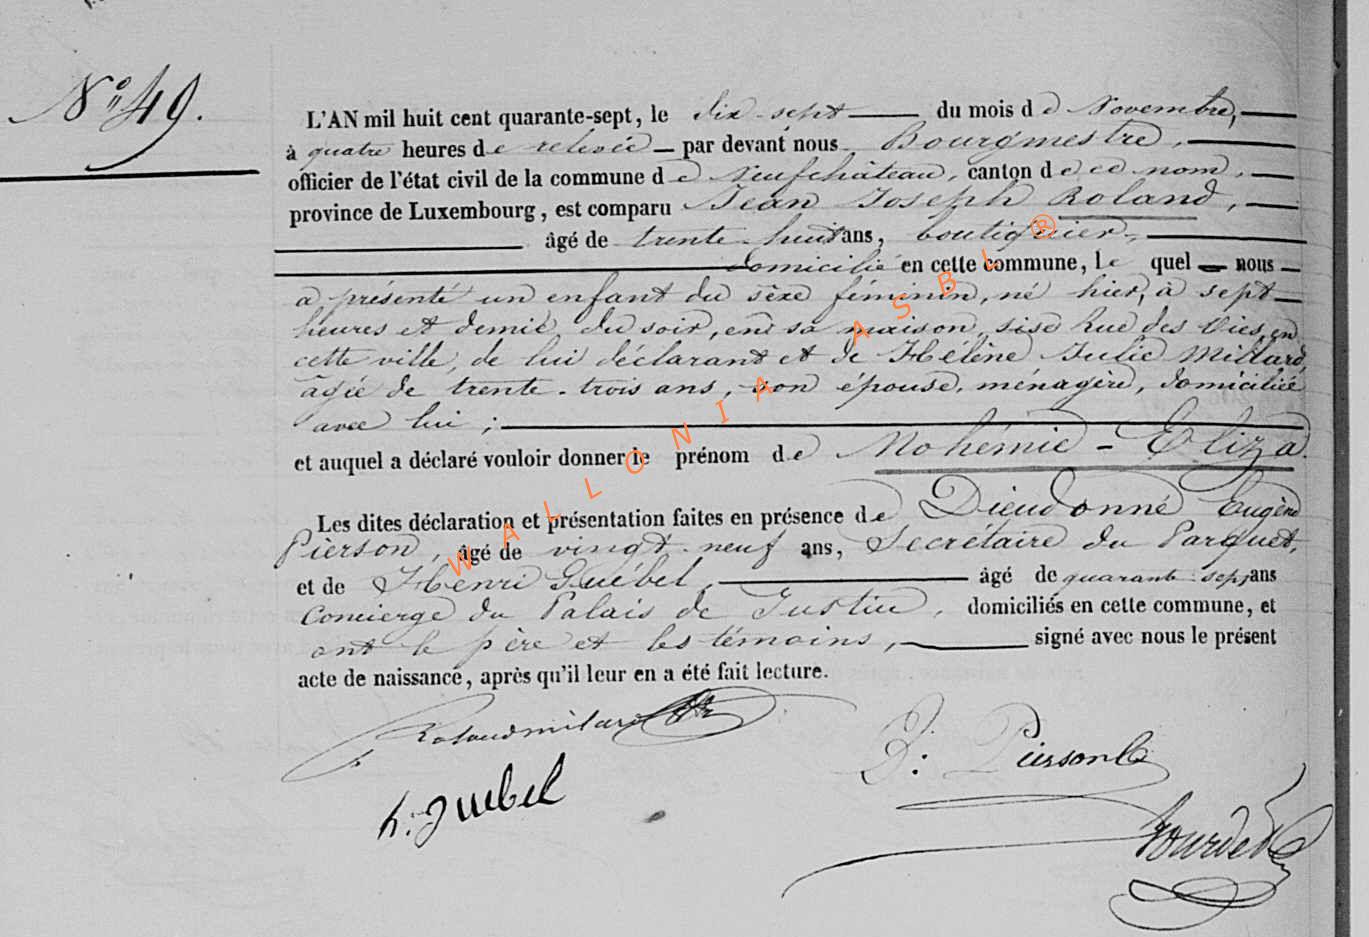 N° 49.
L'AN mil huit cent quarante-sept, le dix-sept du mois de Novembre,
à quatre heures de relevée par devant nous Bourgmestre,
officier de l'état civil de la commune de Neufchâteau, canton de ce nom,
province de Luxembourg, est comparu Jean Joseph Roland,
âgé de trente-huit ans, boutiquier,
domicilié en cette commune, le quel nous
a présenté un enfant du sèxe féminin, né hier, à sept
heures et demie du soir, en sa maison, sise Rue des Vies, en
cette ville, de lui déclarant et de Hélène Julie Millard,
agée de trente-trois ans, son épouse, ménagère, domiciliée
avec lui ;
et auquel a déclaré vouloir donner le prénom de Mohémie - Eliza.
Les dites déclaration et présentation faites en présence de Dieudonné Eugène
Pierson, âgé de vingt-neuf ans, Secrétaire du Parquet,
et de Henri Guébel, âgé de quarante-sept ans
Concierge du Palais de Justice, domiciliés en cette commune, et
ont le père et les témoins, signé avec nous le présent
acte de naissance, après qu'il leur en a été fait lecture.
Rolandmilard
D: Pierson
h. Guebel
WALLONIA ASBL ®